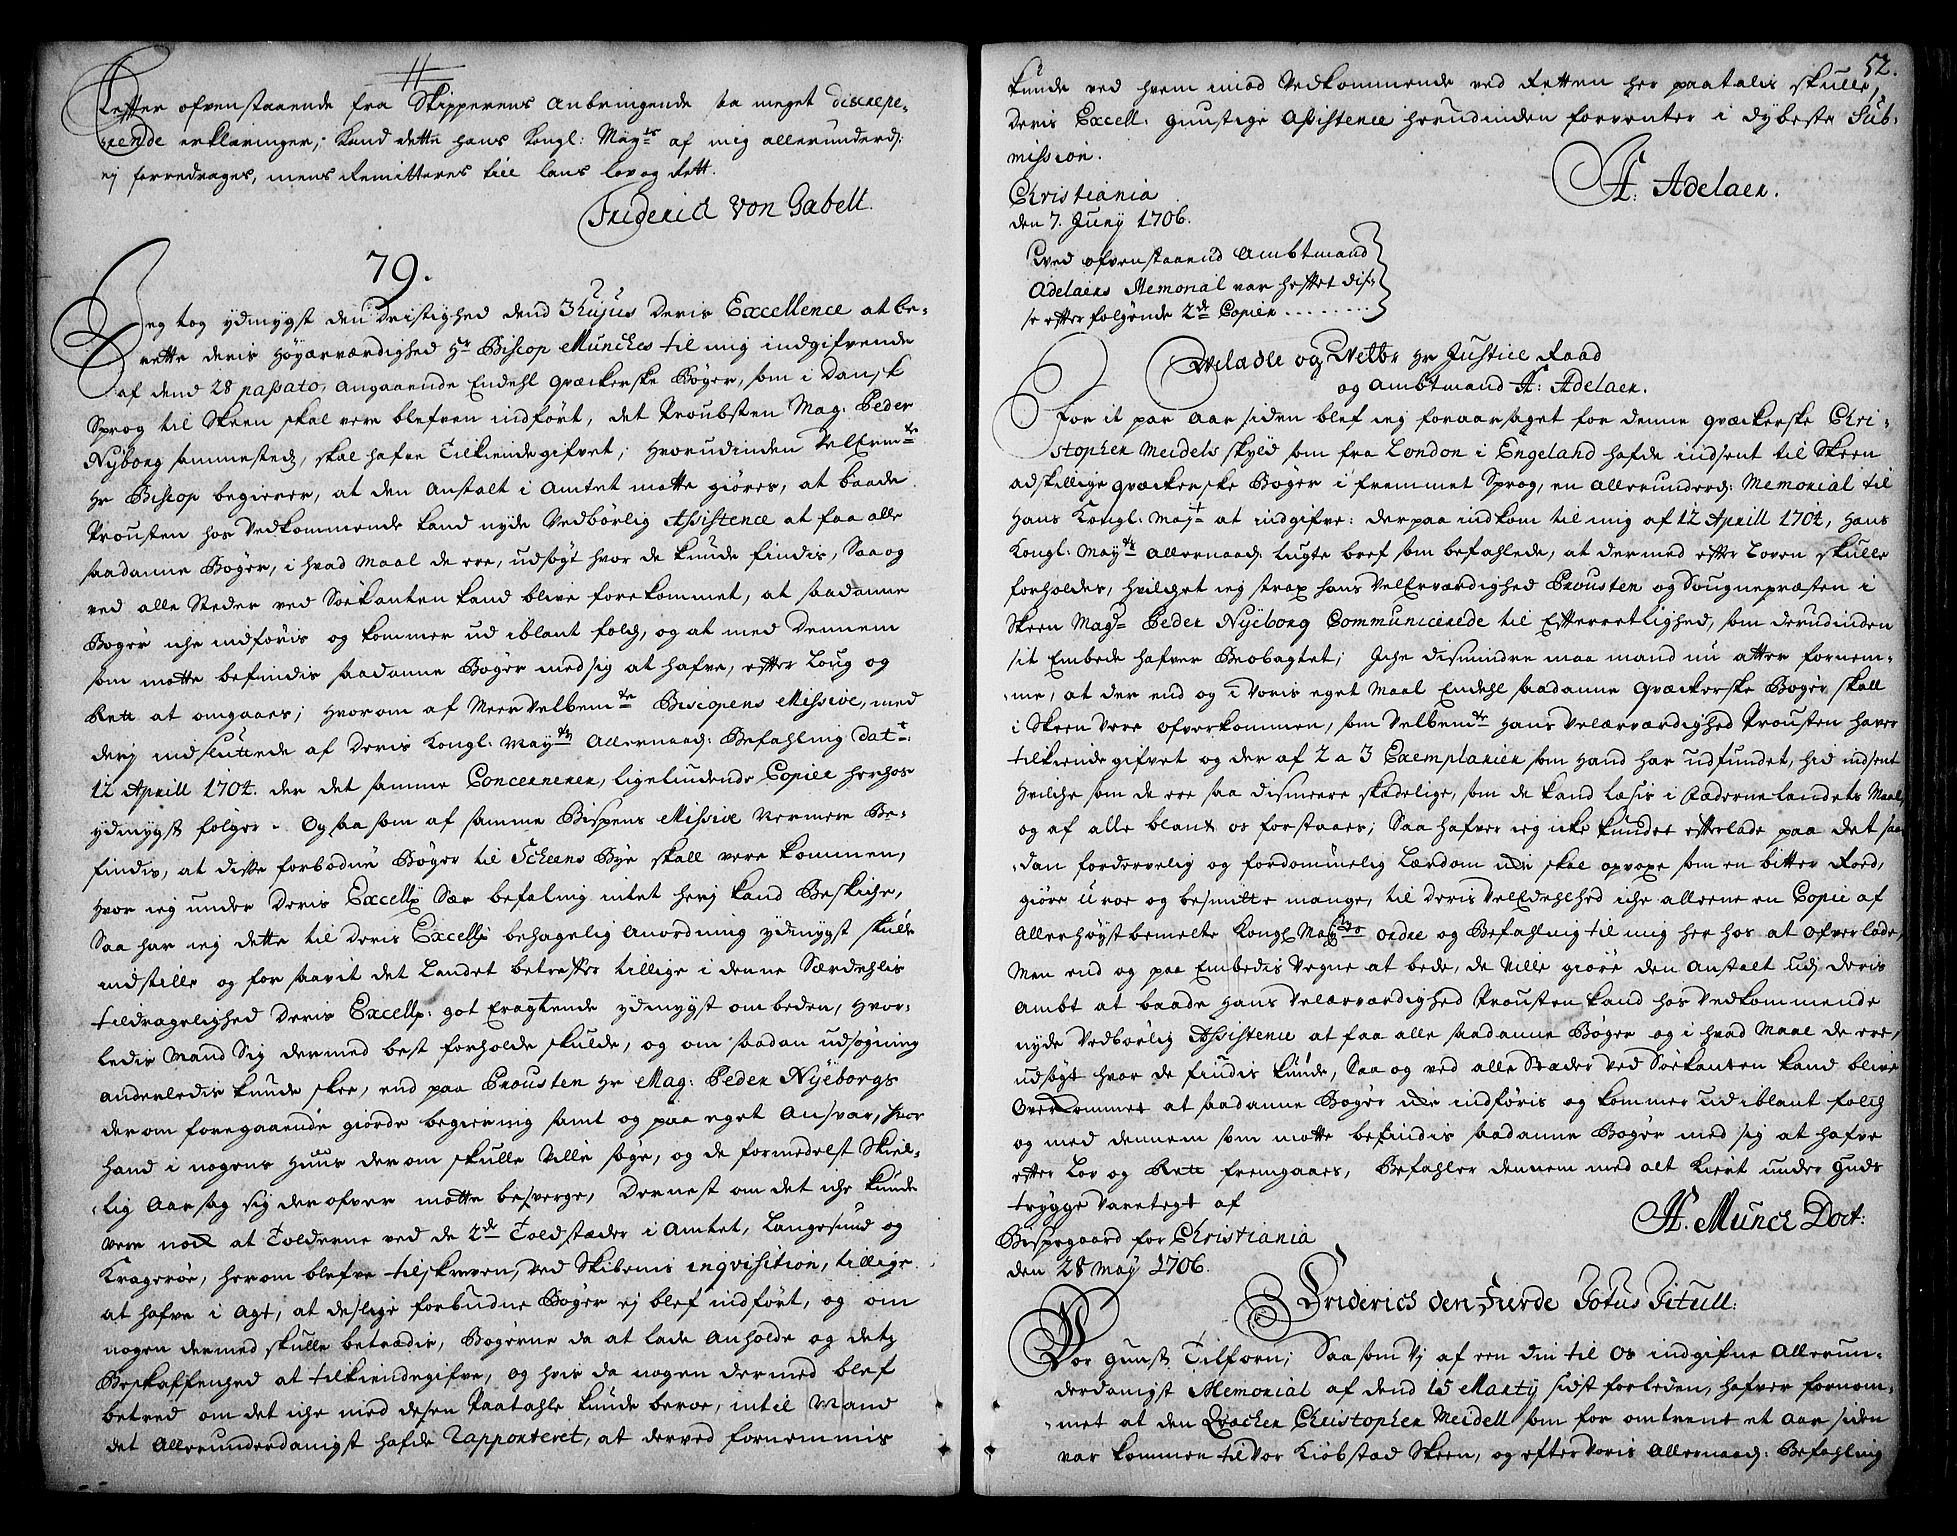 Efter ofvenstaaende fra Skipperens anbringende saa meget discrepe-
rende erklæringer, kand dette hans Kongl: Mayts af mig allerunderd:
ej forredrages, mens Remitteres till lans lov og Rett.
Friderich Von Gabell.
79.
Jeg tog ydmygst den dristighed dend 3 hujus Deris Excellence at be-
rette deris Høyærværdighed Hr Biscop Munches til mig indgifvende
af dend 28 passato, angaaende Endehl qvækerske Bøger, som i Dansk
Sprog til Skeen skal vere blefven indført, det Proubsten Mag: Peder
Nyborg sammesteds, skal hafve Tilkiende gifvet; hvorudinden Velbemte
Hr Biscop begierer, at den anstalt i Amtet motte giøres, at baade
Prousten hos Vedkommende kand nyde Vedbørlig Assistence at faa alle
saadanne Bøger, i hvad Maal de ere, udsøgt hvor de kunde findis, Saa og
ved alle Steder ved Søekanten kand blive forekommet, at saadanne
Bøger iche indføris og kommer ud iblant folch, og at med Dennem
som motte befindis saadanne Bøger med sig at hafve, efter Loug og
Rett at omgaaes; hvorom af Meer Velbemte Biscopens Missive, med
derj indsluttede af Deris Kongl: Mayts Allernaad: Befahling dat:
12 Aprill 1704. der det samme Concernerer, ligeludende Copier herhos
ydmygst følger. Og saa som af samme Bispens Missive vermere Be-
findis, at disse forbodne Bøger til Scheens Bye skall vere kommen,
hvor ieg under Deris Excell: Sær befaling intet herj kand Beskiche,
Saa har ieg dette til Deris Excell: behagelig anordning ydmygst skulle
indstille og for saavit det Landet betreffer tillige i denne Særdehlis
tildragelighed Deris Excell: got Eragtende ydmygst ombeden, hvor-
ledis Mand Sig dermed best forholde skulde, og om saadan udsøgning
anderledis kunde skee, end paa Prousten Hr Mag: Peder Nyeborgs
derom foregaaende giorde begiering samt og paa eget Ansvar, hvor
hand i nogens Huus derom skulle Ville søge, og de formedelst Skiel-
lig Aarsag sig derofver motte besverge, Dernest om det iche kunde
vere nock at Tolderne ved de 2de Toldstæder i Amtet, Langesund og
Kragerøe, herom blefve tilskreven, ved Skibenis inqvisition, tillige
at hafve i agt, at deslige forbudne Bøger ej blef indført, og om
nogen dermed skulle betrædis, Bøgerne da at lade anholde og dets
Beskaffenhed at tilkiendegifve, og hvis da nogen dermed blef
betred om det iche med desen Paatahle kunde beroe, intil Mand
det Allerunderdanigst hafde Rapporteret, at derved fornemmis
52.
kunde ved hvem imod Vedkommende ved Retten her paatalis skulle,
Deris Excell: gunstige Assistence herudinden forventer i dybeste Sub-
mission.
A: Adelaer.
Christiania
den 7. Juny 1706.
Ved ofvenstaaend Ambtmand
Adelaers Memorial var hefftet dis-
se efter følgende 2de Copier ........
Velædle og Velbr Hr Justice Raad
og Ambtmand A: Adelaer.
For it par aar siden blef ieg foraarsaget for denne qvækerske Chri-
stopher Meidels skyld som fra London i Engeland hafde indsent til Skeen
adskillige qvækerske Bøger i fremmet Sprog, en Allerunderd: Memorial til
Hans Kongl: Mayt at indgifve: derpaa indkom til mig af 12 Aprill 1704, Hans
Kongl: Mayts Allernaad: lugte bref som befahlede, at dermed efter Loven skulle
forholdes, hvilchet ieg strax hans VelErværdighed Prousten og Sougnepræsten i
Skeen Magr Peder Nyeborg Communicerede til Efterretlighed, som derudinden
sit Embede hafver Beobagtet; Iche dismindre maa mand nu atter fornem-
me, at der end og i Voris eget Maal Endehl saadanne Qvækerske Bøger skall
i Skeen vere ofverkommen, som Velbemte Hans Velærværdighed Prousten haver
tilkiende gifvet og der af 2 a 3 Exemplarier som hand har udfundet, hid indsent
Hvilche som de ere saa dismeere skadelige, som de kand læsis i Fæderne landets Maal,
og af alle blant os forstaaes; Saa hafver ieg icke kundet efterlade paa det saa-
dan fordervelig og fordømmelig Lærdom icke skal opvoxe som en bitter Roed,
giøre uroe og besmitte mange, til Deris VelEdelhed iche alleene en Copie af
Allerhøystbemelte Kongl: Mayts ordre og Befahling til mig her hos at ofverlade,
Men end og paa Embedis Vegne at bede, de ville giøre den Anstalt udj deris
Ambt at baade Hans Velærværdighed Prousten kand hos Vedkommende
nyde Vedbørlig Assistence at faa alle saadanne Bøger og i hvad Maal de ere,
udsøgt hvor de findis kunde, Saa og ved alle Stæder Ved Søekanten kand blive
Overkommet at saadanne Bøger icke indføris og kommer ud iblant folch
og med dennem som motte befindis saadanne Bøger med sig at hafve
efter Lov og Rett fremgaaes, Befahler dennem med alt kiert under Guds
trygge Varetegt af
H. Munch Doct:
Bispegaard for Christiania
den 28 May 1706.
Friderich den Fierde Totus Titull:
Vor gunst Tilforn; Saasom Vj af een din til Os indgifne Allerun-
derdanigst Memorial af dend 15 Marty sidst forleden, hafver fornom-
met at den Qvacker Christopher Meidell som for omtrent et aar siden
var kommen til Vor Kiøbstad Skeen, og efter Voris Allernaad: Befahling